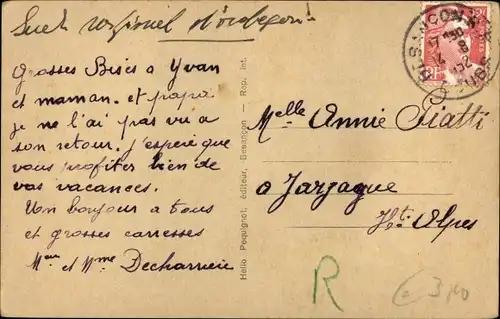 Grosses Bises à Yvan
et maman. et papa
je ne l'ai pas vu a
son retour. j'espère que
vous profitez bien de
vos vacances.
Un bonjour a tous
et grosses caresses
Mr et Mme Decharriere
Helio Pequignot, éditeur, Besançon – Rep. int.
BESANCON
Melle Annie Piatti
a Jarjaque
Htes Alpes
R